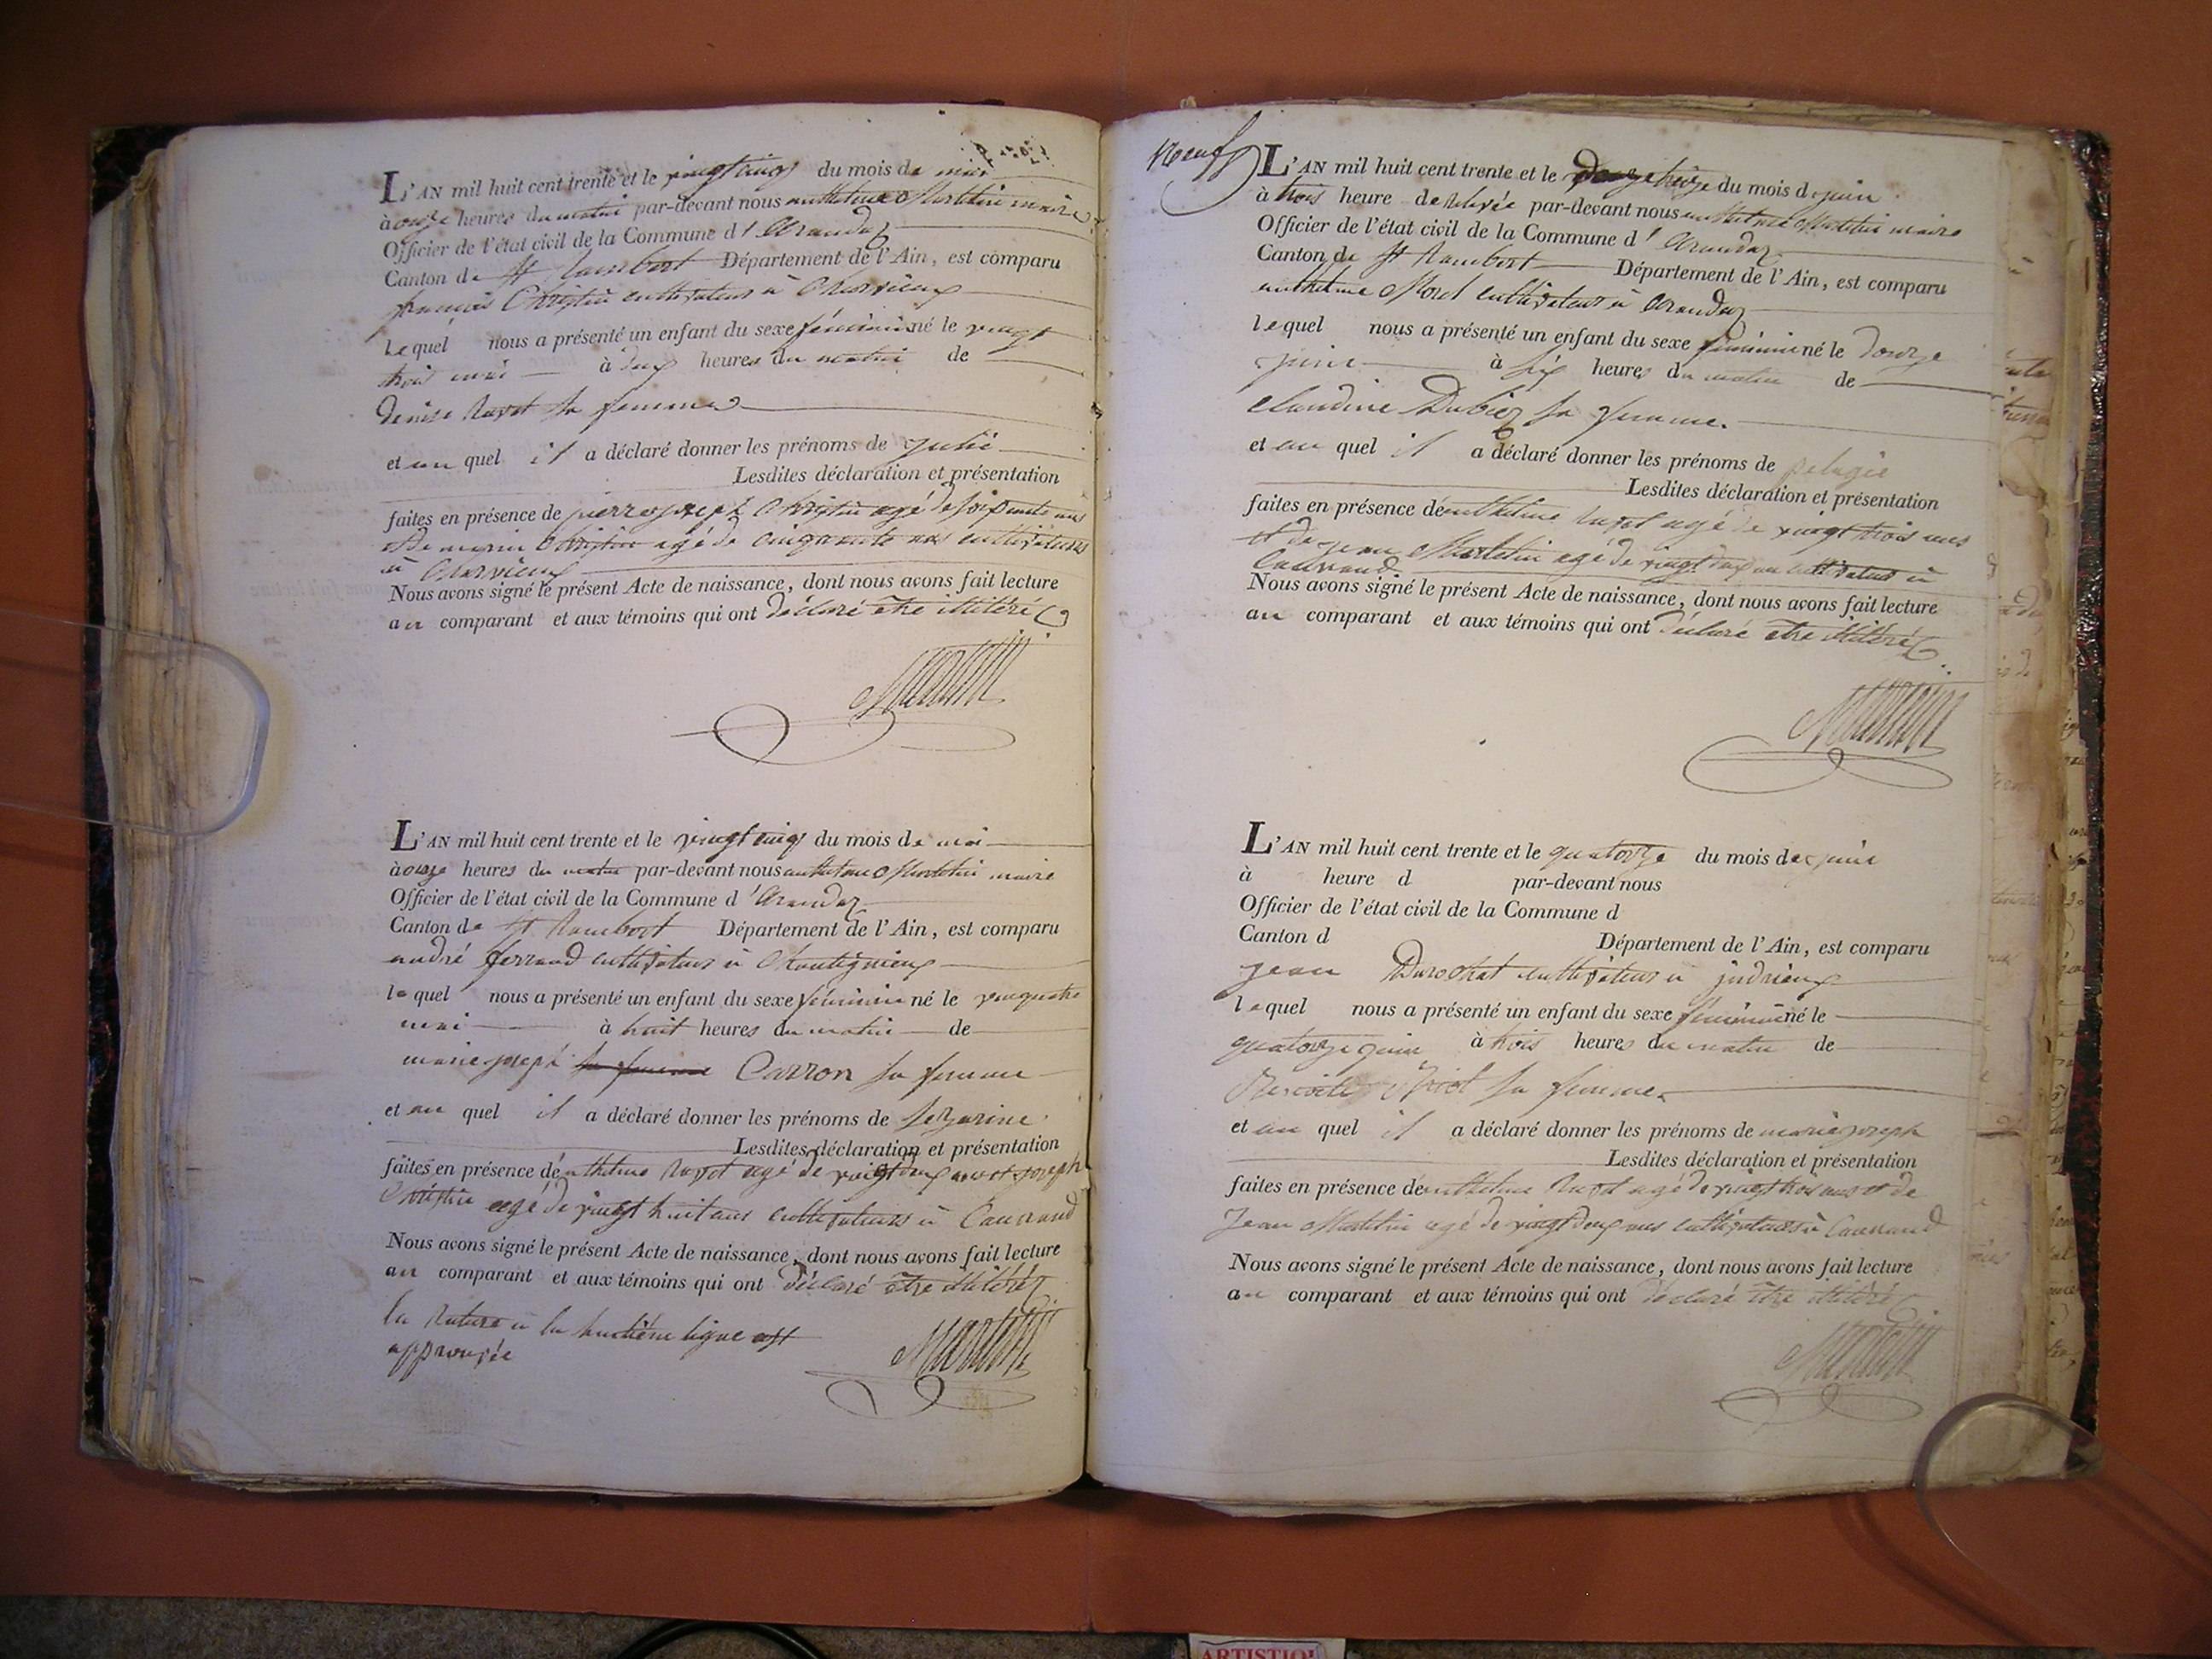 L'AN mil huit cent trente et le vingt cinq du mois de mai
à onze heures du matin par-devant nous anthelme Martelin maire
Officier de l'état civil de la Commune d'Arandaz
Canton de St Rambert Département de l'Ain, est comparu
françois Christin cultivateur à
lequel nous a présenté un enfant du sexe féminin né le vingt
trois mai à deux heures du matin de
denise ravot sa femme
et au quel il a déclaré donner les prénoms de Julie
Lesdites déclaration et présentation
faites en présence de pierre joseph Christin agé de soixante ans
et de marin Christin agé de cinquante ans cultivateurs
à
Nous avons signé le présent Acte de naissance, dont nous avons fait lecture
au comparant et aux témoins qui ont déclaré etre illitéré
Martelin
L'AN mil huit cent trente et le vingt cinq du mois de mai
à onze heures du matin par-devant nous anthelme Martelin maire
Officier de l'état civil de la Commune d'Arandaz
Canton de St Rambert Département de l'Ain, est comparu
andré ferrand cultivateur à
lequel nous a présenté un enfant du sexe féminin né le vingquatre
mai à huit heures du matin de
marie joseph sa femme Carron sa femme
et au quel il a déclaré donner les prénoms de
Lesdites déclaration et présentation
faites en présence d'anthelme ravot agé de vingt deux ans et joseph
Christin agé de vingt huit ans cultivateurs à Caunand
Nous avons signé le présent Acte de naissance, dont nous avons fait lecture
au comparant et aux témoins qui ont déclaré etre illitéré
la rature à la huitième ligne est
approuvée
Martelin
Neuf
L'AN mil huit cent trente et le treize du mois de juin
à trois heure de relevée par-devant nous anthelme Martelin maire
Officier de l'état civil de la Commune d'Arandaz
Canton de St Rambert Département de l'Ain, est comparu
anthelme Morel cultivateur à Arandaz
lequel nous a présenté un enfant du sexe féminin né le douze
juin à six heures du matin de
claudine Dubiez sa femme.
et au quel il a déclaré donner les prénoms de pelagie
Lesdites déclaration et présentation
faites en présence d'anthelme ravot agé de vingt trois ans
et de jean Martelin agé de vingt deux ans cultivateurs à
Caunand
Nous avons signé le présent Acte de naissance, dont nous avons fait lecture
au comparant et aux témoins qui ont déclaré etre illitéré
Martelin
L'AN mil huit cent trente et le quatorze du mois de juin
à heure d par-devant nous
Officier de l'état civil de la Commune d
Canton d Département de l'Ain, est comparu
jean Durochat cultivateur à indrieux
lequel nous a présenté un enfant du sexe féminin né le
quatorze juin à trois heures du matin de
sa femme
et au quel il a déclaré donner les prénoms de marie joseph
Lesdites déclaration et présentation
faites en présence d'anthelme ravot agé de vingt trois ans et de
Jean Martelin agé de vingt deux ans cultivateurs à Caunand
Nous avons signé le présent Acte de naissance, dont nous avons fait lecture
au comparant et aux témoins qui ont déclaré etre illitéré
Martelin
ARTISTIQ